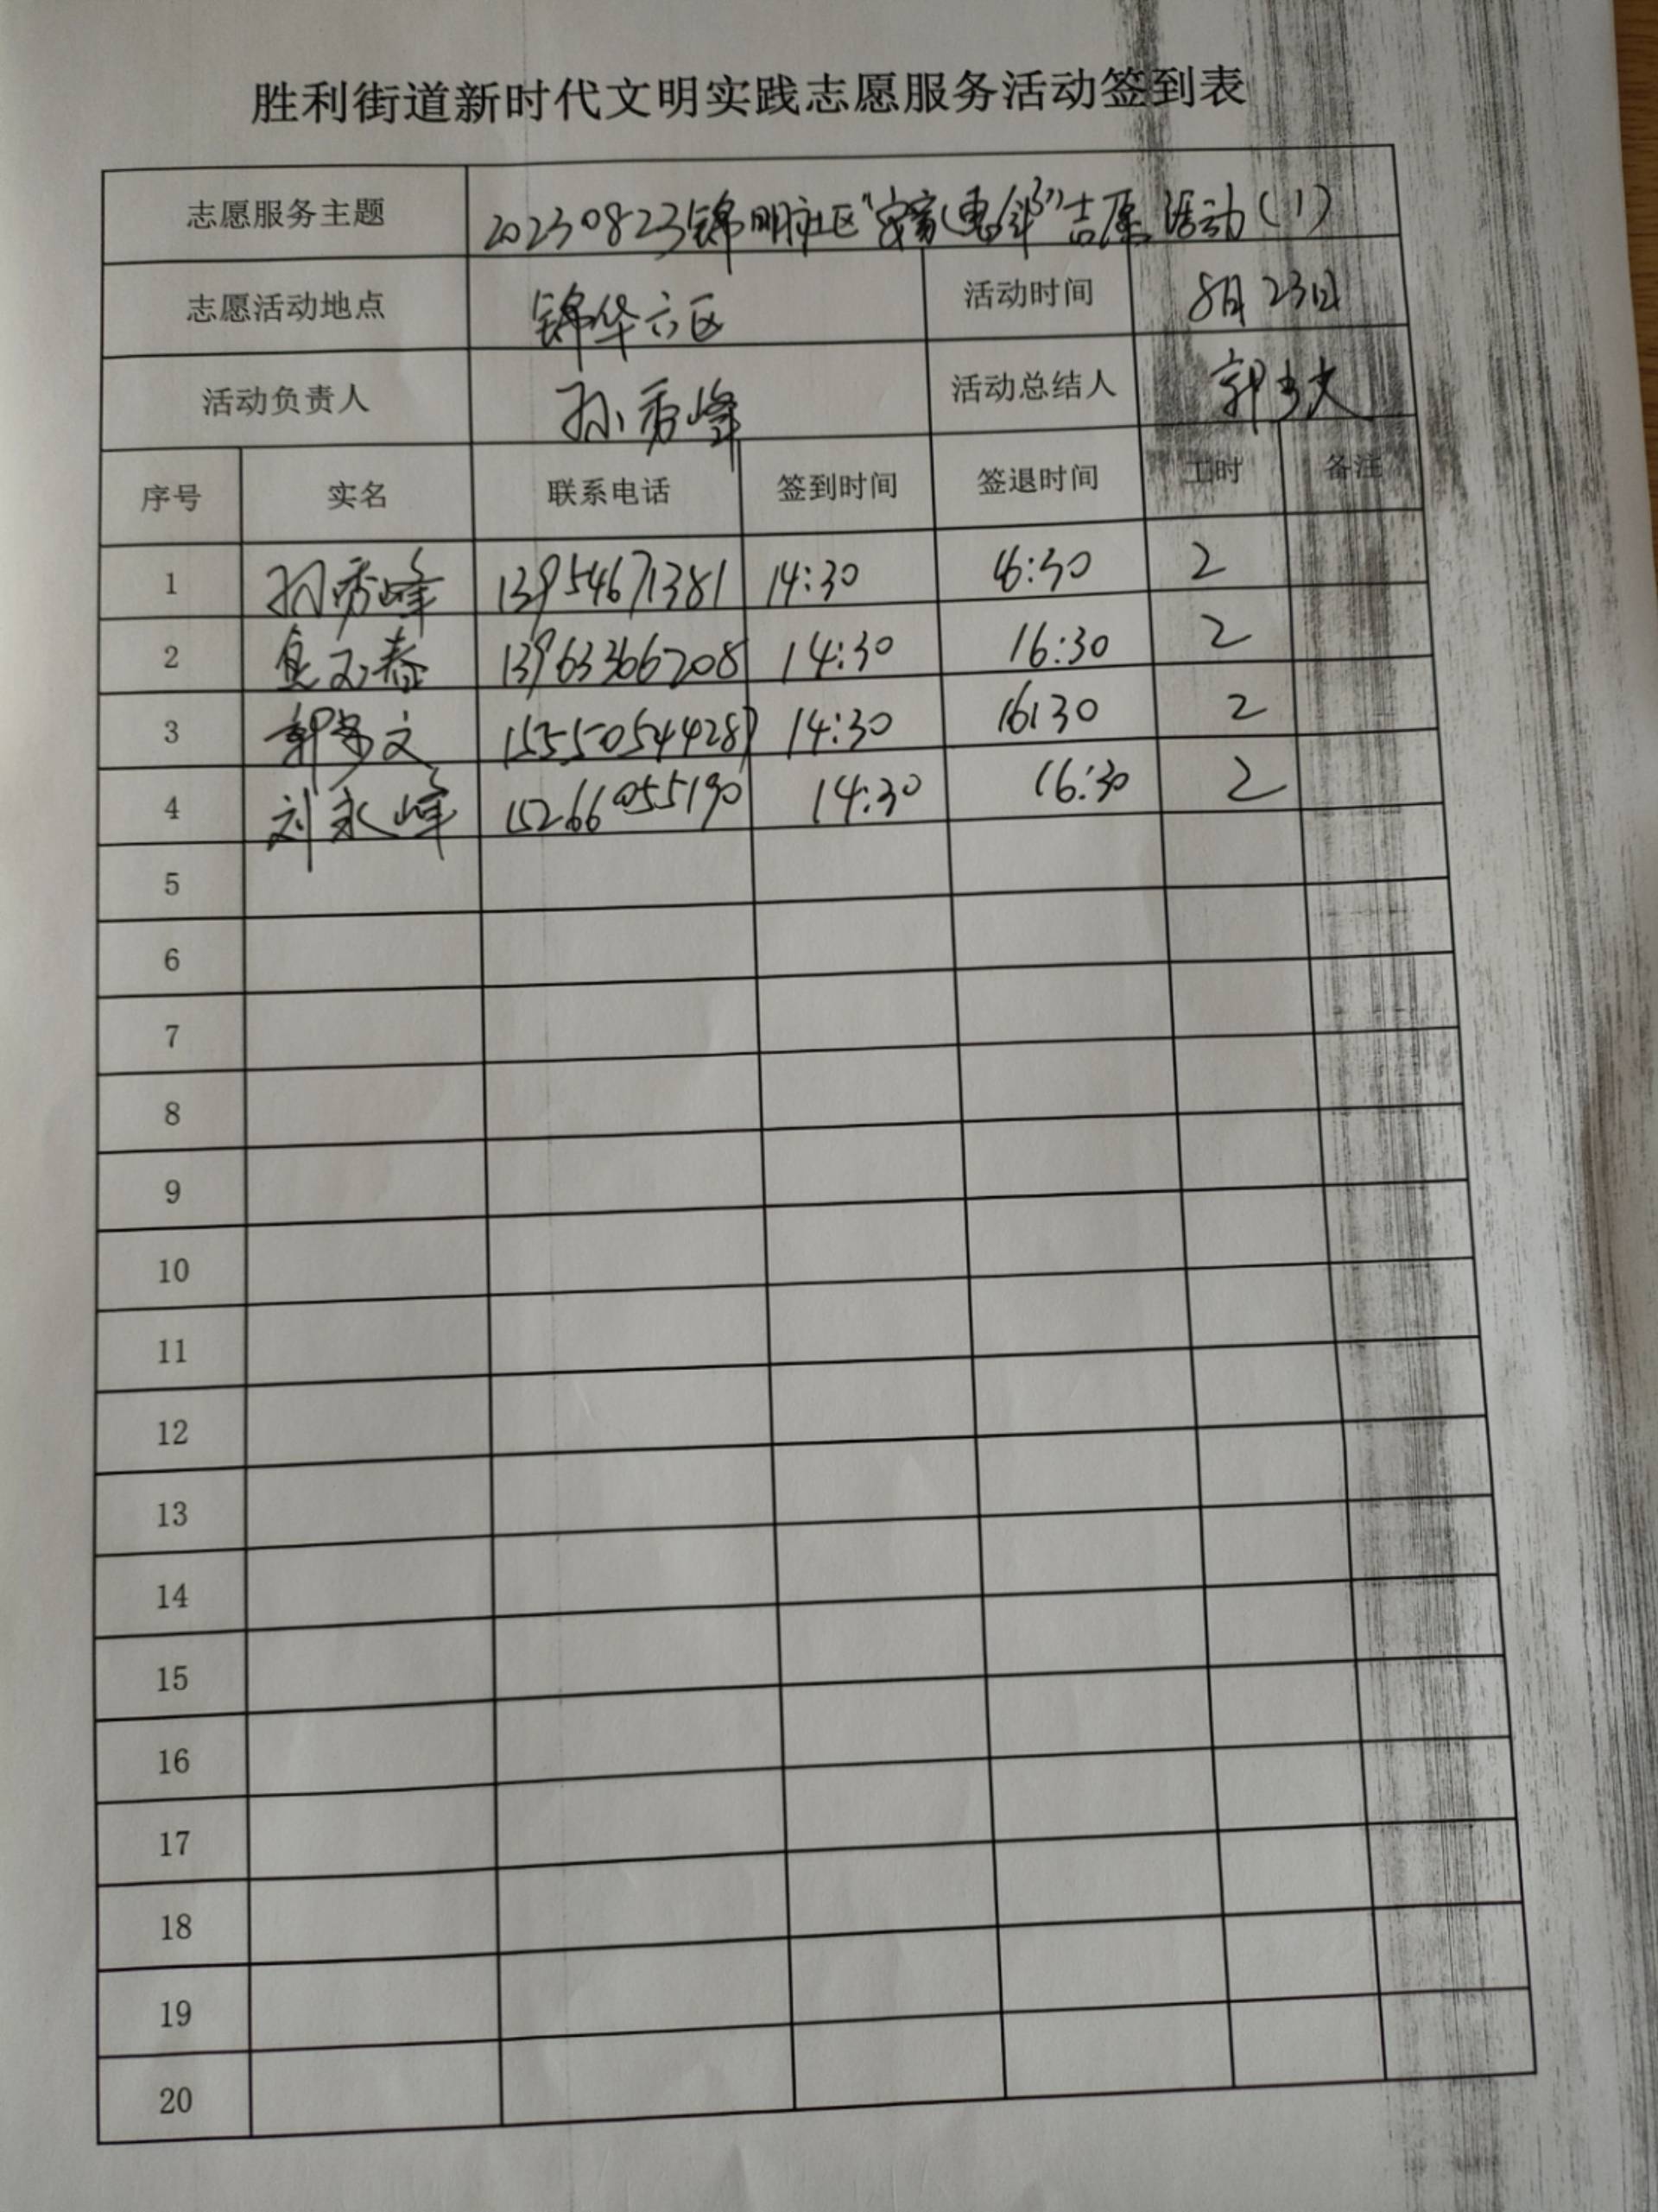 胜利街道新时代文明实践志愿服务活动签到表
志愿服务主题 20230823锦明社区 志愿活动(1)
志愿活动地点 锦华六区 活动时间 8月23日
活动负责人 孙秀峰 活动总结人 郭 文
序号 实名 联系电话 签到时间 签退时间 工时 备注
1 孙秀峰 13954671381 14:30 16:30 2
2 13963366208 14:30 16:30 2
3 郭 文 15550544287 14:30 16:30 2
4 刘永峰 15266055190 14:30 16:30 2
5
6
7
8
9
10
11
12
13
14
15
16
17
18
19
20